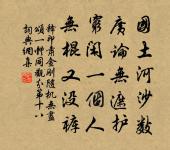 國土河沙數
廣論無遮护
窮閑一個人
無棍又沒褲
釋印肅金剛隨机無盡
頌一體同觀分第十八
詞典網集